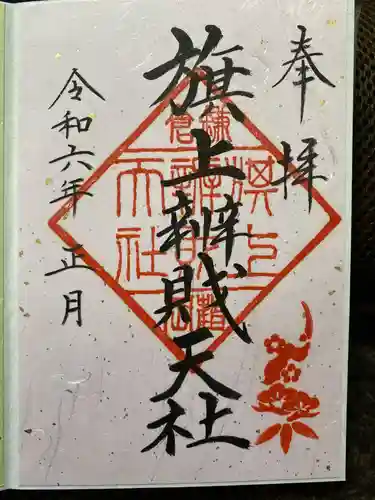 奉拝
旗上辨財天社
令和六年正月
鎌倉
旗上
辨財
天社